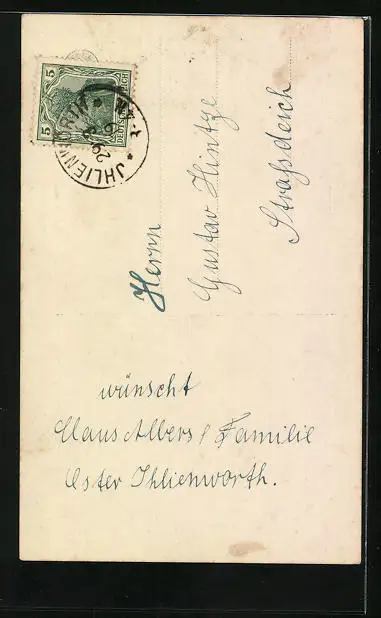 5
5
DEUTSCHES REICH
* JHLIENWORTH *
29
Herrn
Gustav Hintze
Straßdeich
wünscht
Claus Albers / Familie
Oster Ihlienworth.